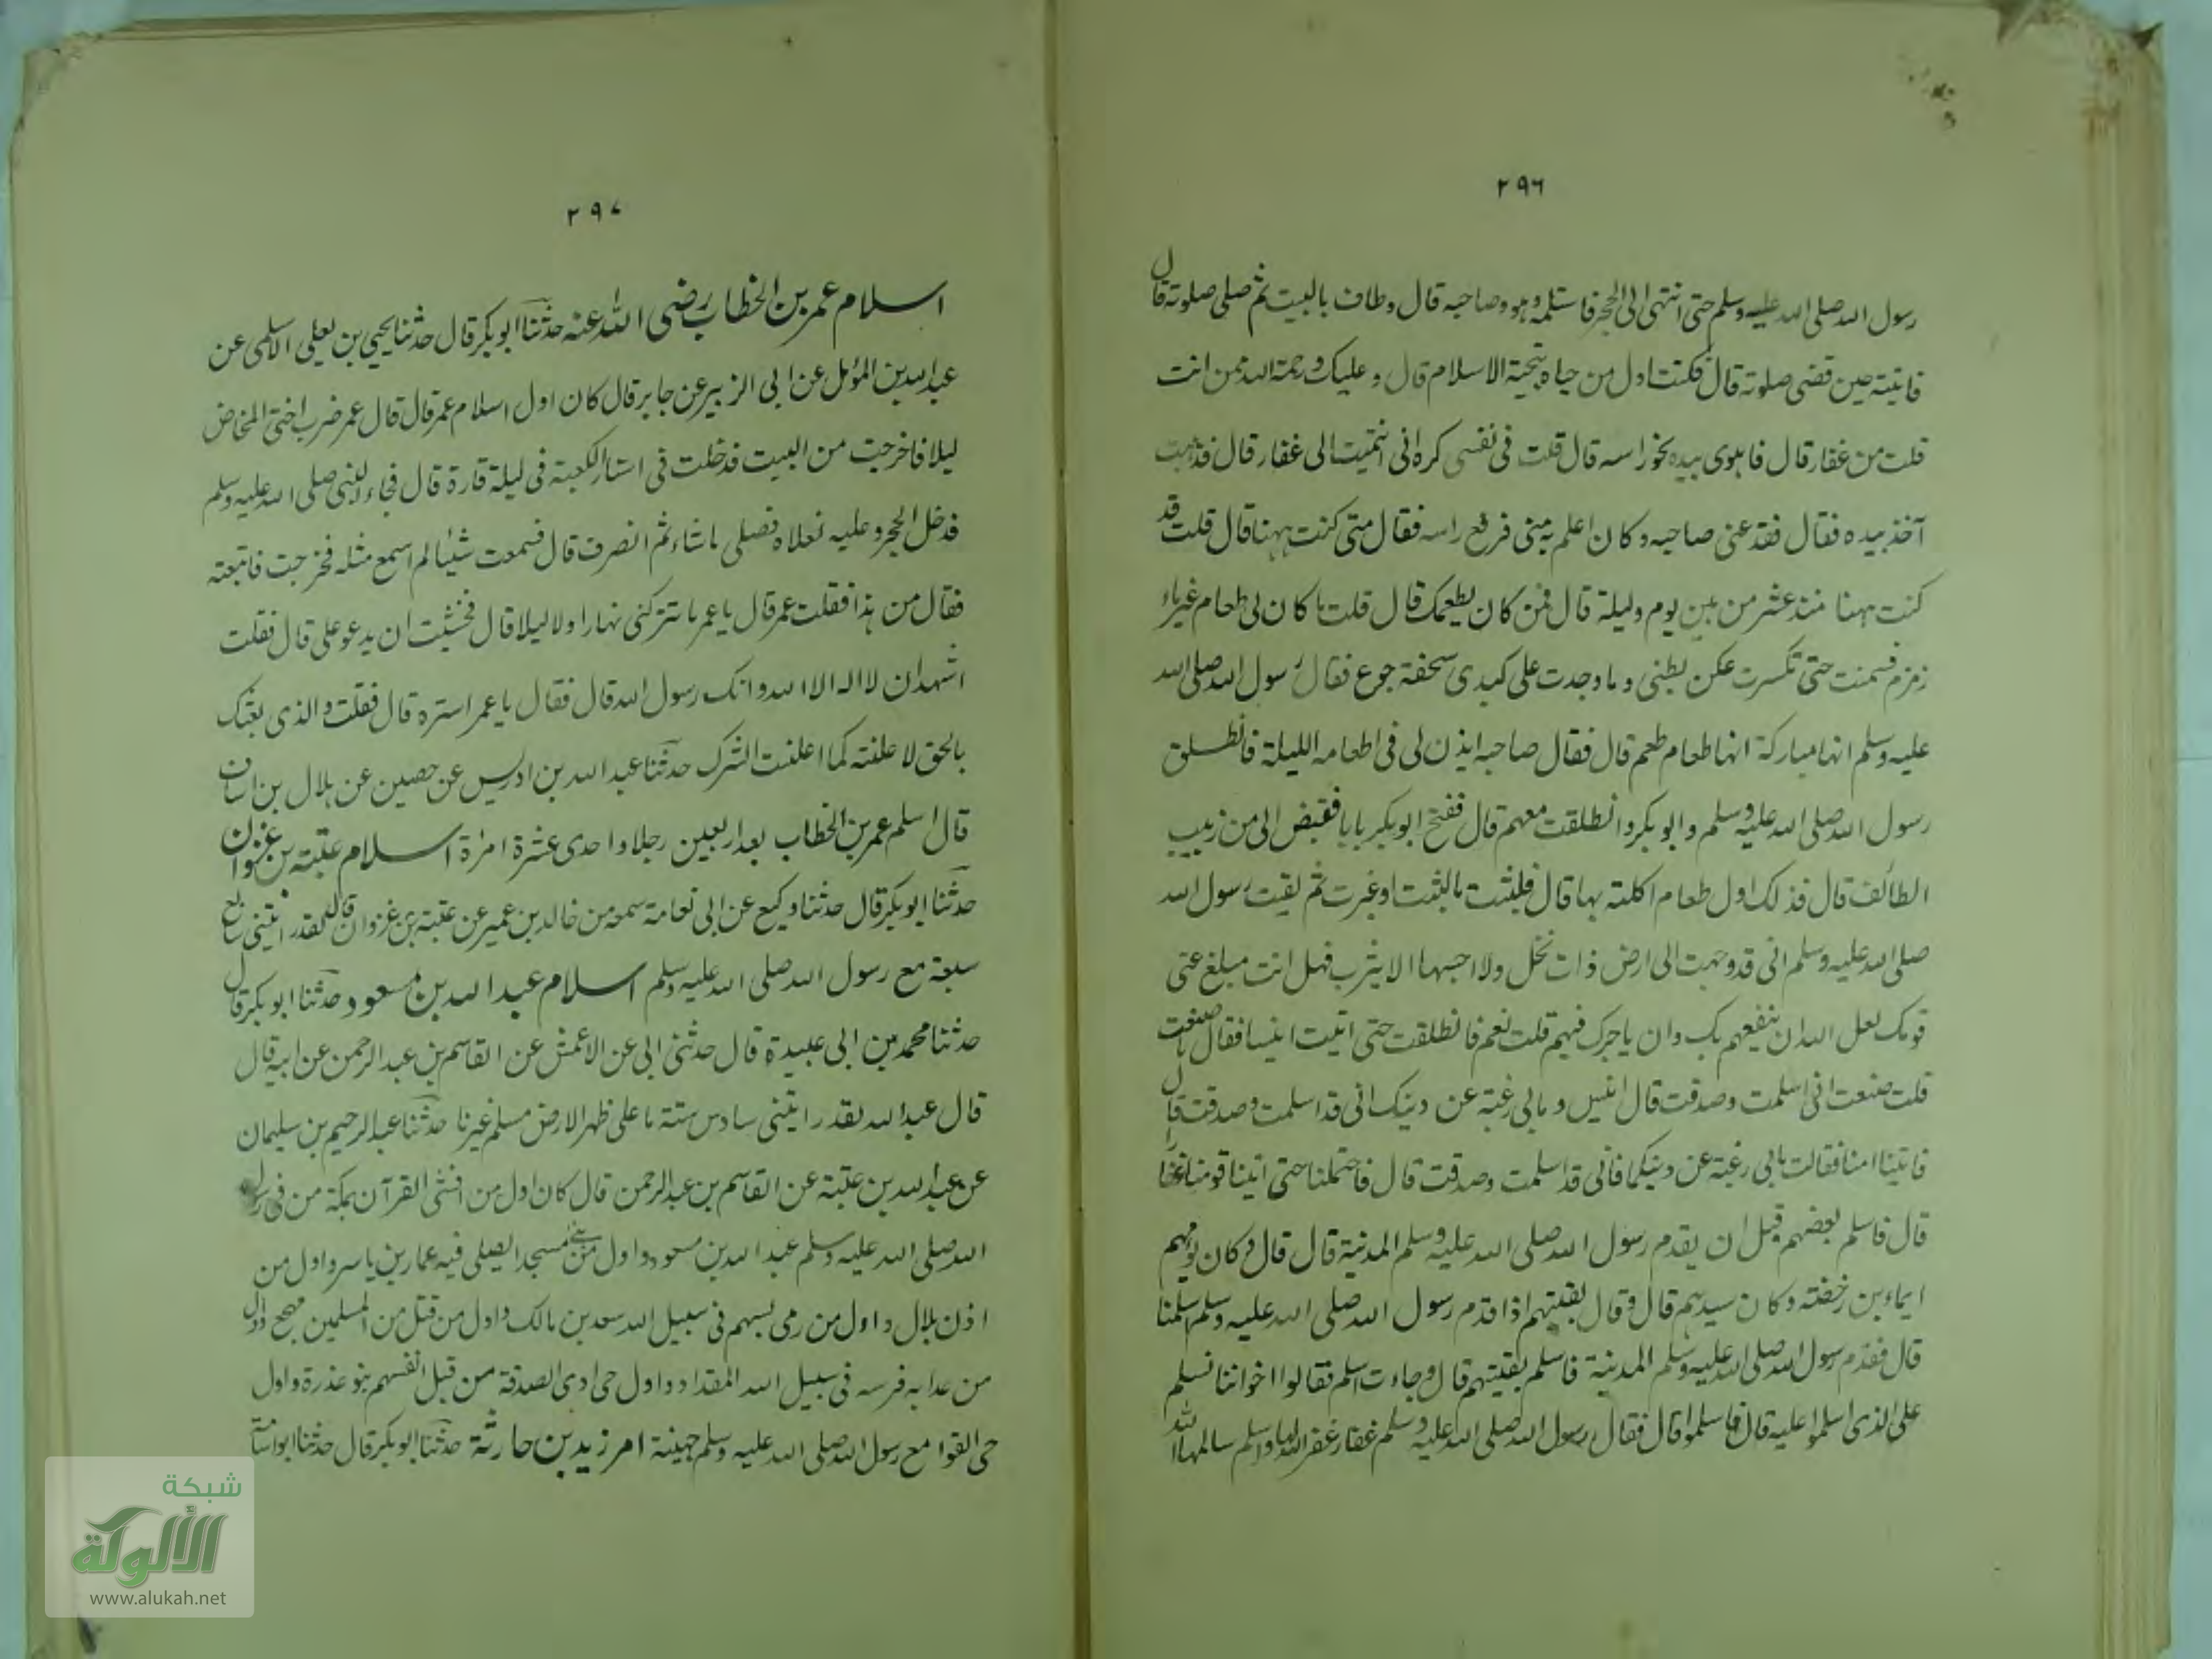 ٢٩٦
رسول الله صلى الله عليه وسلم حتى انتهى الى الحجر فاستلمه وهو وصاحبه قال وطاف بالبيت ثم صلى صلوته قال
فاتيته حين قضى صلوته قال فكنت اول من حياه بتحية الاسلام قال وعليك ورحمة الله ممن انت
قلت من غفار قال فاهوى بيده نحو راسه قال قلت فى نفسى كره انى انتميت الى غفار قال فذهبت
آخذ بيده فقال فقدعنى صاحبه وكان اعلم به منى فرفع راسه فقال متى كنت ههنا قال قلت قد
كنت ههنا منذ عشر من بين يوم وليلة قال فمن كان يطعمك قال قلت ما كان لى طعام غير ماء
زمزم فسمنت حتى تكسرت عكن بطنى وما وجدت على كبدى سحفة جوع فقال رسول الله صلى الله
عليه وسلم انها مباركة انها طعام طعم قال فقال صاحبه ايذن لى فى اطعامه الليلة فانطلق
رسول الله صلى الله عليه وسلم وابو بكر وانطلقت معهم قال ففتح ابو بكر بابا فقبض الى من زبيب
الطائف قال فذلك اول طعام اكلته بها قال فلبثت ما لبثت او غبرت ثم لقيت رسول الله
صلى الله عليه وسلم انى قد وجهت الى ارض ذات نخل ولا احسبها الا يثرب فهل انت مبلغ عنى
قومك لعل الله ان ينفعهم بك وان ياجرك فيهم قلت نعم فانطلقت حتى اتيت انيسا فقال ما صنعت
قلت صنعت انى اسلمت وصدقت قال انيس وما بى رغبة عن دينك انى قد اسلمت وصدقت قال
فاتينا امنا فقالت ما بى رغبة عن دينكما فانى قد اسلمت وصدقت قال فاحتملنا حتى اتينا قومنا غفارا
قال فاسلم بعضهم قبل ان يقدم رسول الله صلى الله عليه وسلم المدينة قال قال وكان يؤمهم
ايماء بن رخصة وكان سيدهم قال وقال بقيتهم اذا قدم رسول الله صلى الله عليه وسلم اسلمنا
قال فقدم رسول الله صلى الله عليه وسلم المدينة فاسلم بقيتهم قال وجاءت اسلم فقالوا اخواننا نسلم
على الذى اسلموا عليه قال فاسلموا قال فقال رسول الله صلى الله عليه وسلم غفار غفر الله لها واسلم سالمها الله
٢٩٧
اسلام عمر بن الخطاب رضى الله عنه حدثنا ابو بكر قال حدثنا يحيى بن يعلى الاسلمى عن
عبد الله بن المؤمل عن ابى الزبير عن جابر قال كان اول اسلام عمر قال قال عمر ضرب اختى المخاض
ليلا فاخرجت من البيت فدخلت فى استار الكعبة فى ليلة قارة قال فجاء النبى صلى الله عليه وسلم
فدخل الحجر وعليه نعلاه فصلى ما شاء ثم انصرف قال فسمعت شيئا لم اسمع مثله فخرجت فاتبعته
فقال من هذا فقلت عمر قال يا عمر ما تتركنى نهارا ولا ليلا قال فخشيت ان يدعو على قال فقلت
اشهد ان لا اله الا الله وانك رسول الله قال فقال يا عمر استره قال فقلت والذى بعثك
بالحق لاعلنته كما اعلنت الشرك حدثنا عبد الله بن ادريس عن حصين عن هلال بن اساف
قال اسلم عمر بن الخطاب بعد اربعين رجلا واحدى عشرة امراة اسلام عتبة بن غزوان
حدثنا ابو بكر قال حدثنا وكيع عن ابى نعامة سمعه من خالد بن عمير عن عتبة بن غزوان قال لقد رايتنى سابع
سبعة مع رسول الله صلى الله عليه وسلم اسلام عبد الله بن مسعود حدثنا ابو بكر قال
حدثنا محمد بن ابى عبيدة قال حدثنى ابى عن الاعمش عن القاسم بن عبد الرحمن عن ابيه قال
قال عبد الله لقد رايتنى سادس ستة ما على ظهر الارض مسلم غيرنا حدثنا عبد الرحيم بن سليمان
عن عبد الله بن عتبة عن القاسم بن عبد الرحمن قال كان اول من افشى القرآن بمكة من فى رسول
الله صلى الله عليه وسلم عبد الله بن مسعود واول من بنى مسجدا يصلى فيه عمار بن ياسر واول من
اذن بلال واول من رمى بسهم فى سبيل الله سعد بن مالك واول من قتل من المسلمين مهجع واول
من عدا به فرسه فى سبيل الله المقداد واول حى ادى الصدقة من قبل انفسهم بنو عذرة واول
حى القوا مع رسول الله صلى الله عليه وسلم جهينة امر زيد بن حارثة حدثنا ابو بكر قال حدثنا ابو اسامة
شبكة
الألوكة
www.alukah.net